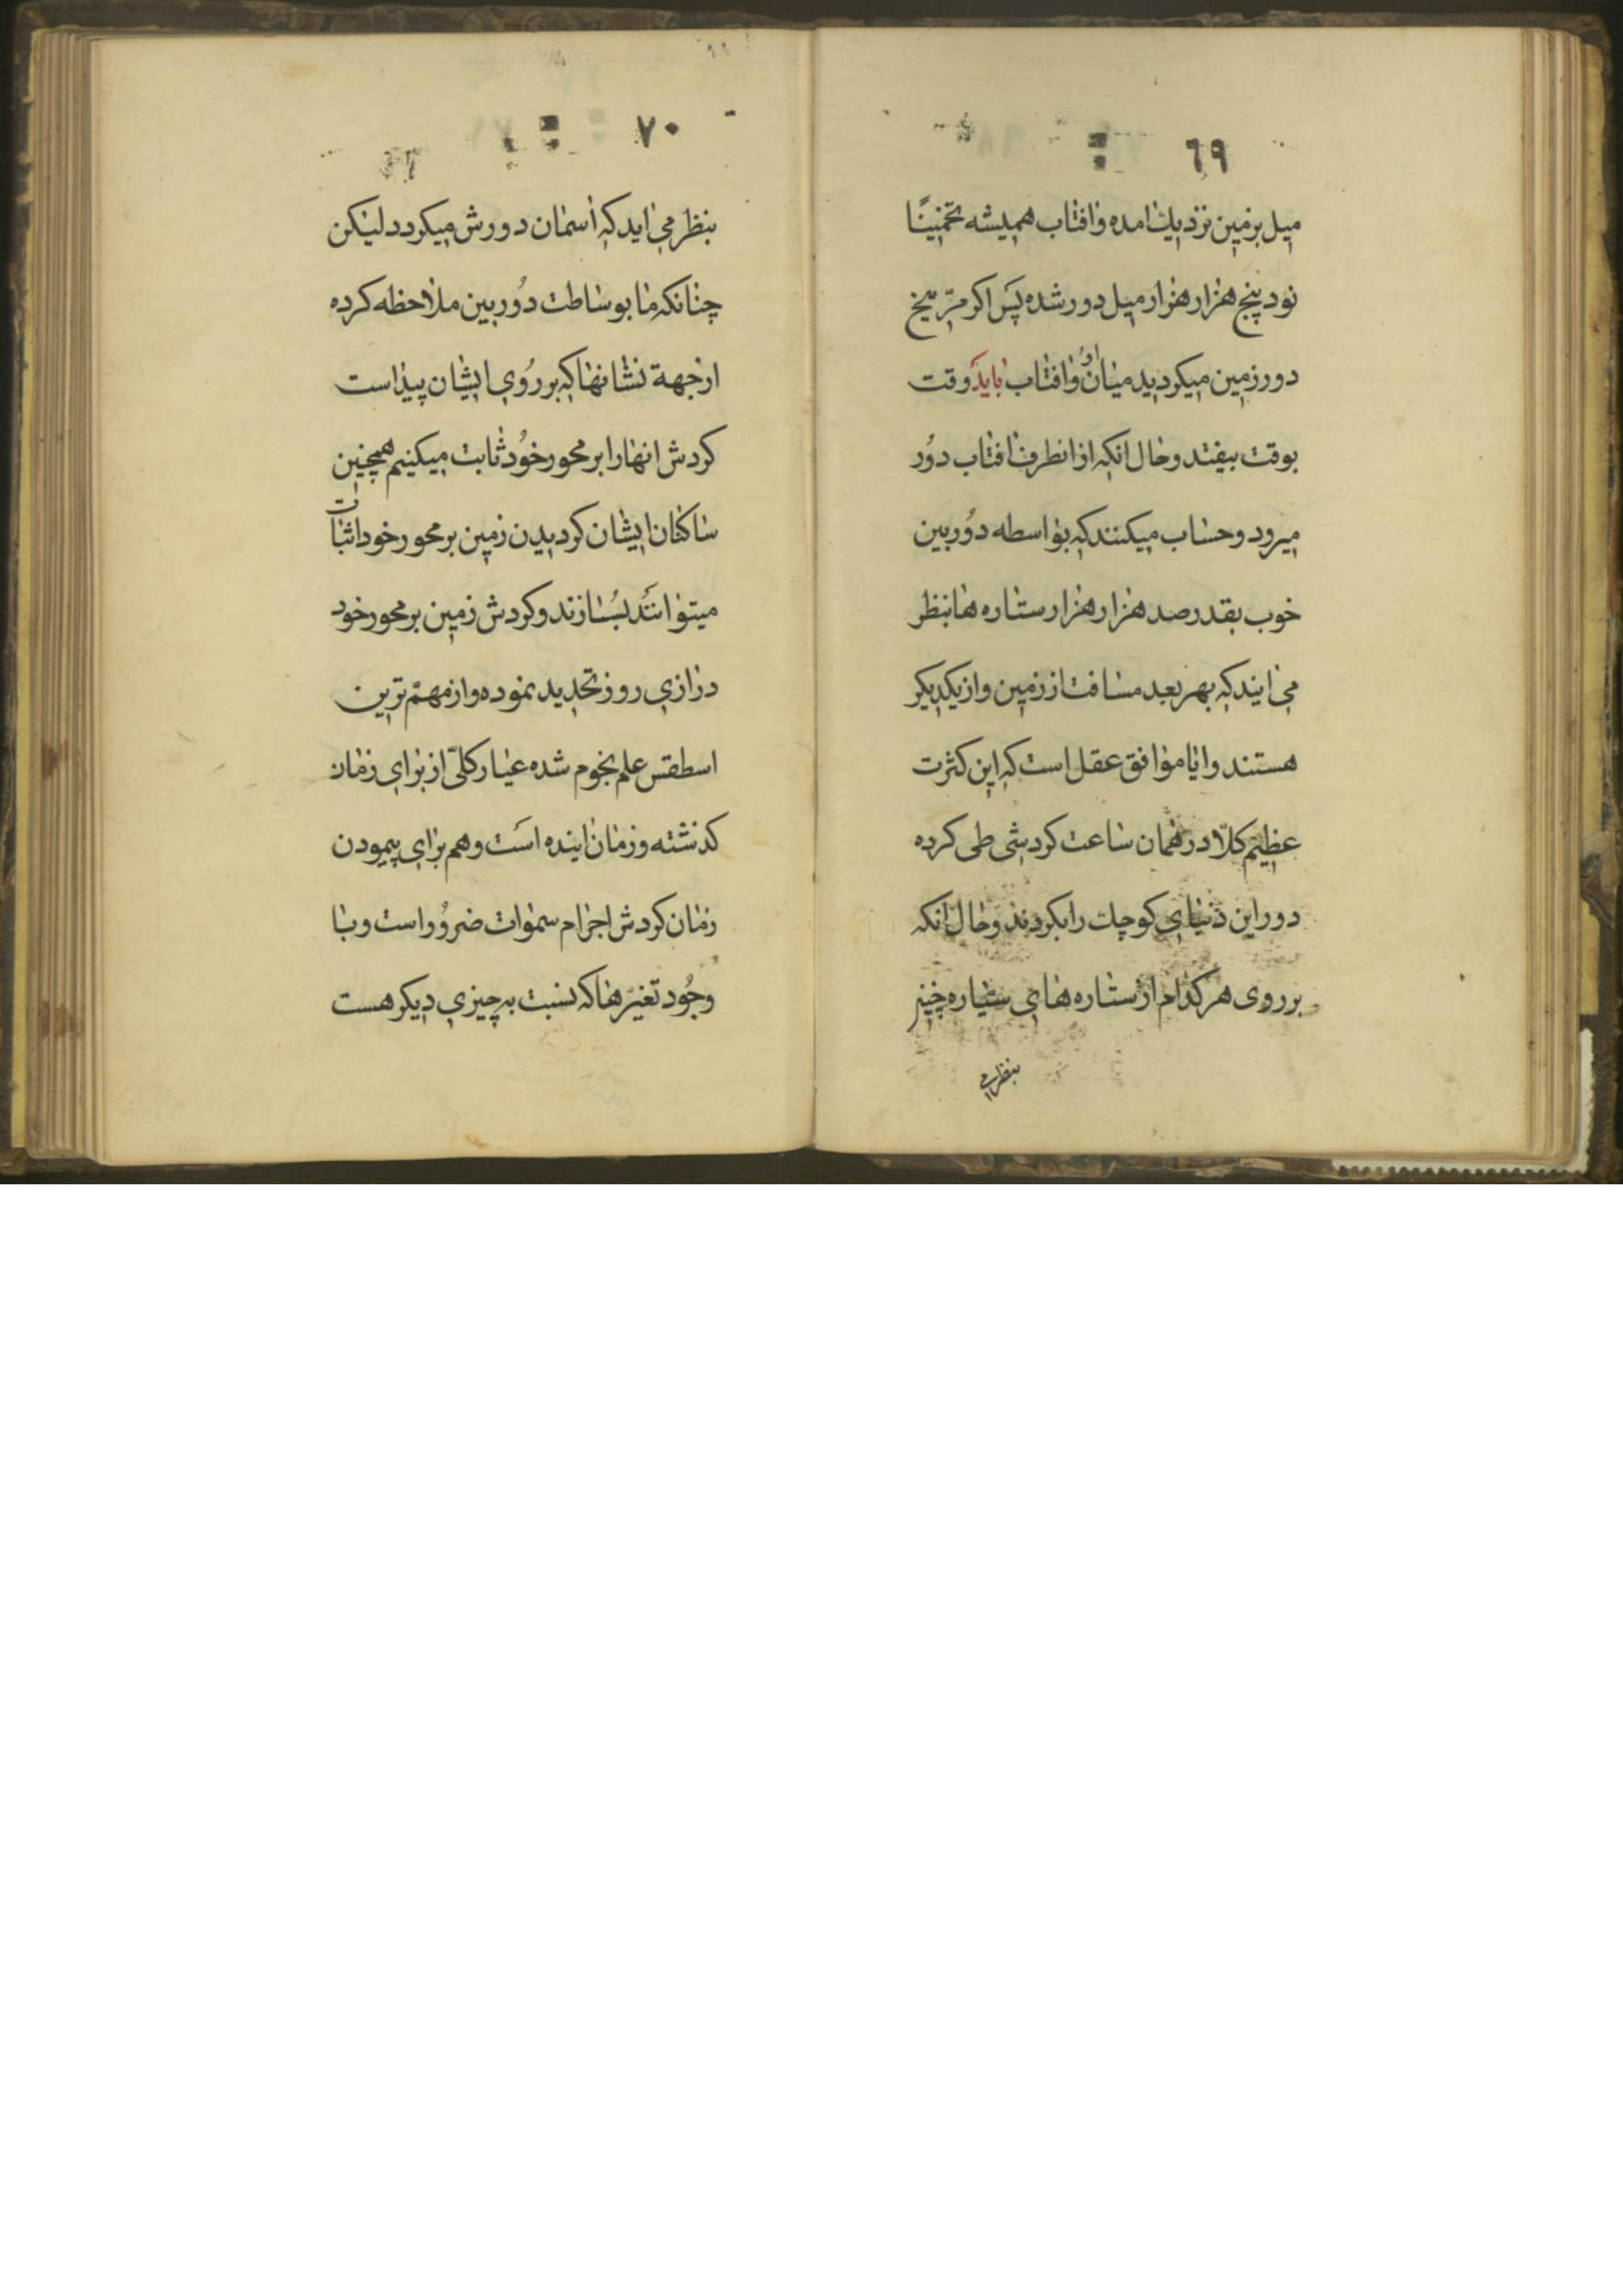 ٦٩
میل بزمین نزدیك امده وافتاب همیشه تخمینًا
نود پنج هزار هزار میل دور شده پس اکر مرّیخ
دور زمین میکردید میان او وافتاب باید وقت
بوقت بیفتد وحال انکه ازانطرف افتاب دُور
میرود وحساب میکنند که بواسطه دوُربین
خوب بقدر صد هزار هزار ستاره ها بنظر
می ایند که بهر بعد مسافت از زمین واز یکدیکر
هستند وایا موافق عقل است که این کثرت
عظیم کلّا در همان ساعت کردشی طی کرده
دور این دنیای کوچك را بکردند وحال انکه
بر روی هر کدام از ستاره های سیّاره چنین
بنظر می
٧٠
بنظر می اید که اسمان دورش میکردد لیکن
چنانکه ما بوساطت دُوربین ملاحظه کرده
ازجهة نشانها که بر رُوی ایشان پیداست
کردش انها را بر محور خوُد ثابت میکنیم همچنین
ساکنان ایشان کردیدن زمین بر محور خود اثبات
میتوانند بسازند وکردش زمین بر محور خود
درازی روز تحدید نموده واز مهمّ ترین
اسطقس علم نجوم شده عیار کلّی از برای زمان
کذشته وزمان اینده است وهم برای پیمودن
زمان کردش اجرام سموات ضروُر است وبا
وجُود تغیّرها که نسبت به چیزی دیکر هست